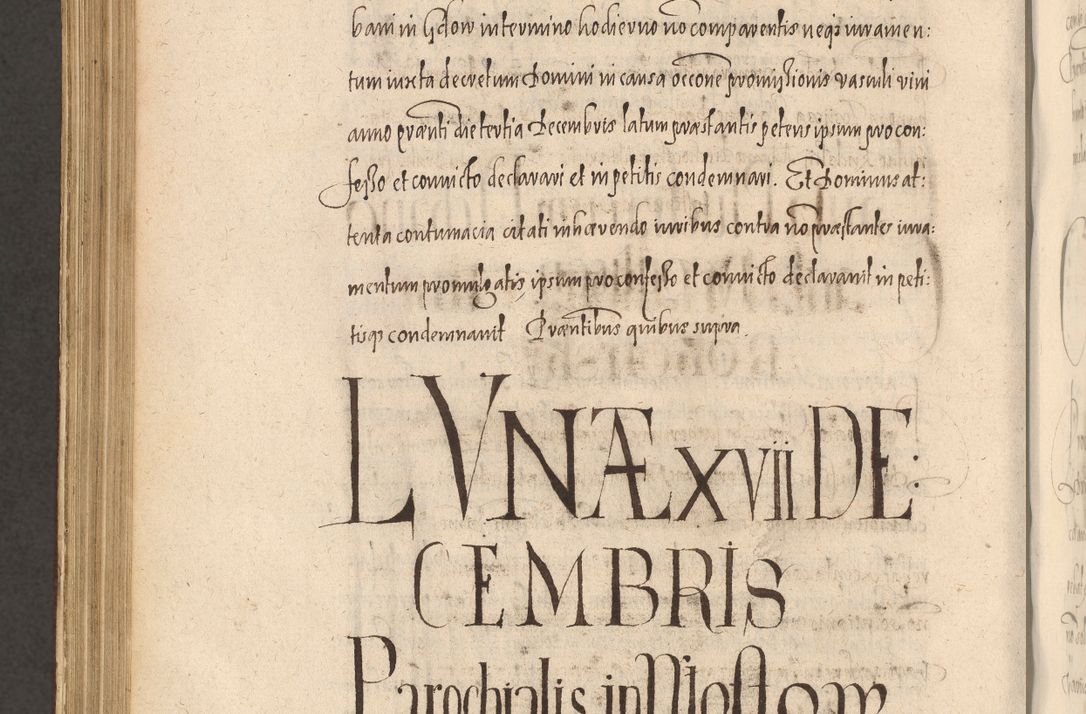 bani in Gdow in termino hodierno nõ comparentis neqȝ iuramen:
tum iuxta decretum Domini in causa occõne promissionis vasculi vini
anno præñti die tertia Decembris latum præstantis petens ipsum pro con:
fesso et convicto declarari et in petitis condemnari. Et Dominus at:
tenta contumacia citati inhærendo iuribus contra nõ præstantes iura:
mentum promulgatis, ipsum pro confesso et convicto declaravit in peti:
tisqȝ condemnavit Præntibus quibus supra.
LVNÆ XVII DE:
CEMBRIS
Parochialis in Mostow